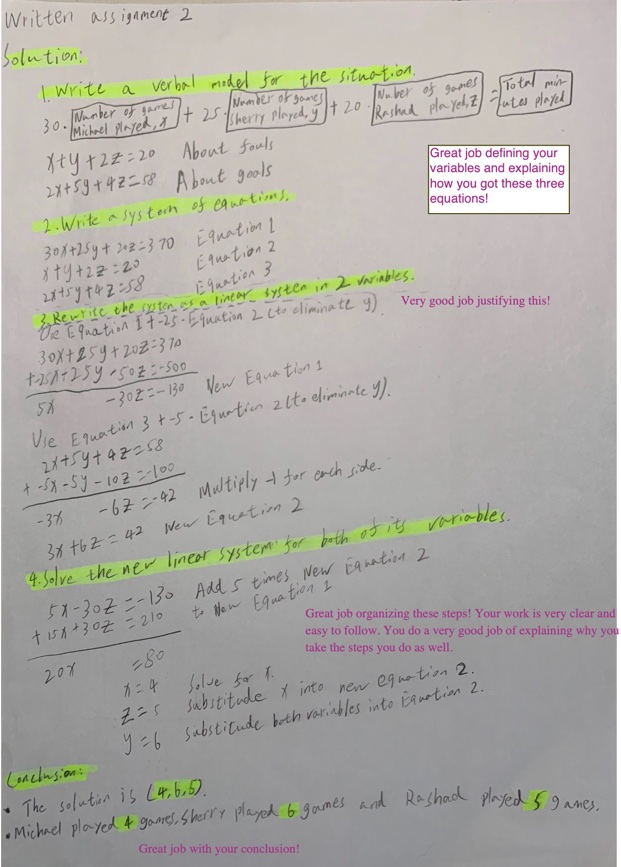 Written assignment 2
Solution:
1. Write a verbal model for the situation.
30 · Number of games Michael played, x + 25 · Number of games Sherry played, y + 20 · Nuber of games Rashad played, z = Total minutes played
x+y+2z=20 About fouls
2x+5y+4z=58 About goals
Great job defining your
variables and explaining
how you got these three
equations!
2. Write a system of equations.
30x+25y+20z=370 Equation 1
x+y+2z=20 Equation 2
2x+5y+4z=58 Equation 3
3. Rewrite the system as a linear system in 2 variables.
Very good job justifying this!
Use Equation 1 + -25 · Equation 2 (to eliminate y)
30x+25y+20z=370
+ -25x-25y-50z=-500
5x -30z=-130 New Equation 1
Use Equation 3 + -5 · Equation 2 (to eliminate y).
2x+5y+4z=58
+ -5x-5y-10z=-100
-3x -6z=-42 Multiply -1 for each side.
3x+6z=42 New Equation 2
4. Solve the new linear system for both of its variables.
5x-30z=-130 Add 5 times New Equation 2
+ 15x+30z=210 to New Equation 1
Great job organizing these steps! Your work is very clear and
easy to follow. You do a very good job of explaining why you
take the steps you do as well.
20x =80
x=4 Solve for x.
z=5 substitute x into new equation 2.
y=6 substitute both variables into Equation 2.
Conclusion:
• The solution is (4,6,5).
• Michael played 4 games, Sherry played 6 games and Rashad played 5 games.
Great job with your conclusion!